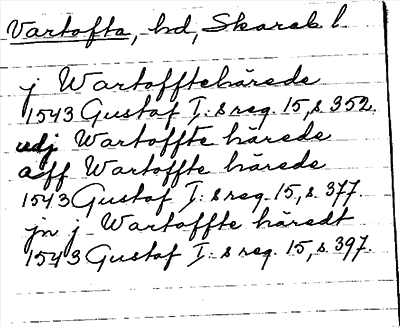 Vartofta, hd, Skarab l.
j Wartofftehärede
1543 Gustaf I:s reg. 15, s. 352.
udj Wartoffte härede
aff Wartoffte härede
1543 Gustaf I:s reg. 15, s. 377.
jn j Wartoffte häredt
1543 Gustaf I:s reg. 15, s. 397.